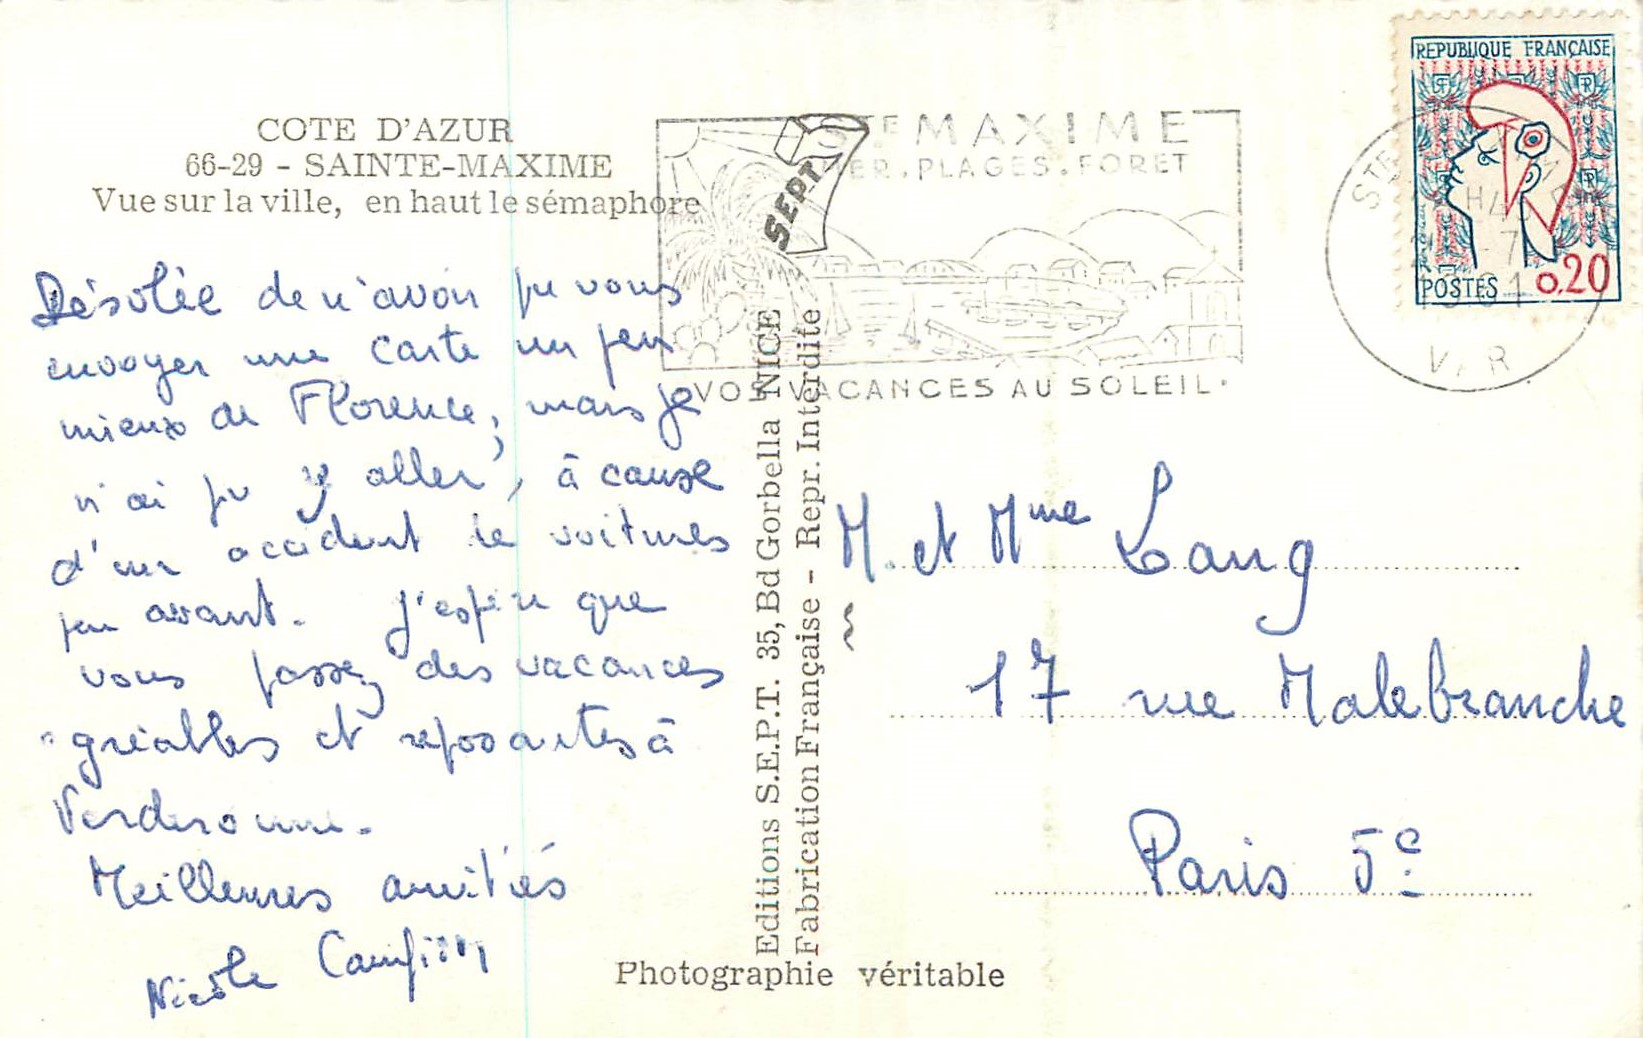 COTE D'AZUR
66-29 - SAINTE-MAXIME
Vue sur la ville, en haut le sémaphore
Désolée de n'avoir pu vous
envoyer une carte un peu
mieux de Florence, mais je
n'ai pu y aller, à cause
d'un accident de voitures
peu avant. J'espère que
vous passez des vacances
agréables et reposantes à
Verderonne.
Meilleures amitiés
Nicole
SEPT
STE MAXIME
MER. PLAGES. FORET
VOS VACANCES AU SOLEIL.
REPUBLIQUE FRANÇAISE
POSTES 0,20
STE
VAR
Editions S.E.P.T. 35, Bd Gorbella NICE
Fabrication Française - Repr. Interdite
M. et Mme Lang
17 rue Malebranche
Paris 5e
Photographie véritable